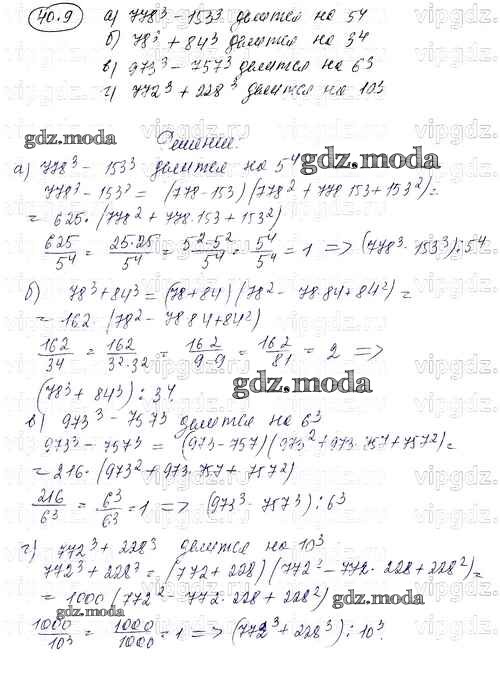 40.9 а) 778³ - 153³ делится на 5⁴
б) 78³ + 84³ делится на 3⁴
в) 973³ - 757³ делится на 6³
г) 772³ + 228³ делится на 10³
gdz.moda
Решение:
а) 778³ - 153³ делится на 5⁴
778³ - 153³ = (778-153)(778² + 778·153 + 153²) =
= 625·(778² + 778·153 + 153²)
625/5⁴ = 25·25/5⁴ = 5²·5²/5⁴ = 5⁴/5⁴ = 1 => (778³ - 153³) ⋮ 5⁴
б) 78³ + 84³ = (78+84)(78² - 78·84 + 84²) =
= 162·(78² - 78·84 + 84²)
162/34 = 162/3²·3² = 162/9·9 = 162/81 = 2 =>
gdz.moda
(78³ + 84³) ⋮ 3⁴.
в) 973³ - 757³ делится на 6³
973³ - 757³ = (973-757)(973² + 973·757 + 757²) =
= 216·(973² + 973·757 + 757²)
216/6³ = 6³/6³ = 1 => (973³ - 757³) ⋮ 6³
г) 772³ + 228³ делится на 10³
772³ + 228³ = (772 + 228)(772² - 772·228 + 228²) =
= 1000(772² - 772·228 + 228²)
gdz.moda
1000/10³ = 1000/1000 = 1 => (772³ + 228³) ⋮ 10³.
vipgdz.ru